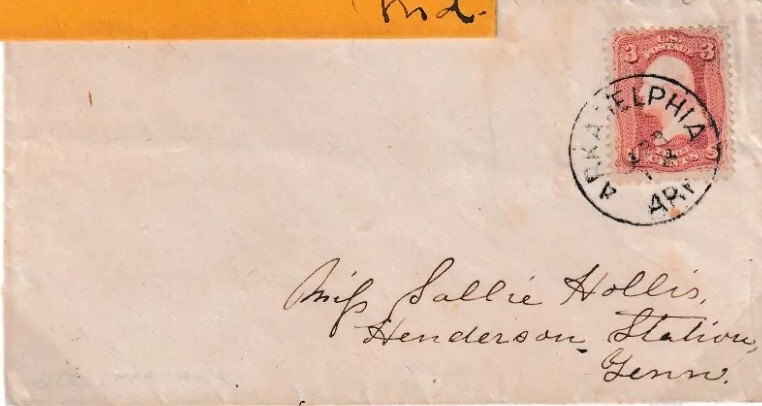 Ind.
3 U.S. POSTAGE 3
ARKADELPHIA
ARK
Miss Sallie Hollis,
Henderson Station,
Tenn.